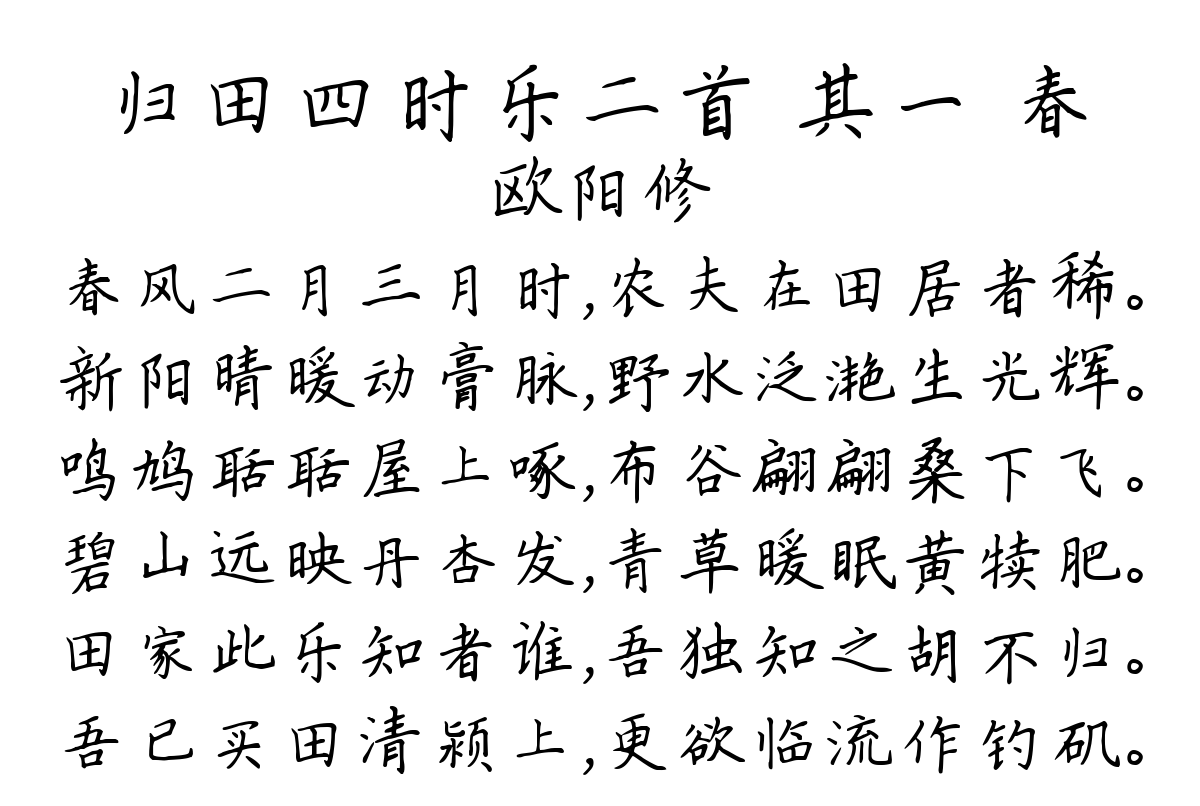 归田四时乐二首 其一 春
欧阳修
春风二月三月时,农夫在田居者稀。
新阳晴暖动膏脉,野水泛滟生光辉。
鸣鸠聒聒屋上啄,布谷翩翩桑下飞。
碧山远映丹杏发,青草暖眠黄犊肥。
田家此乐知者谁,吾独知之胡不归。
吾已买田清颍上,更欲临流作钓矶。